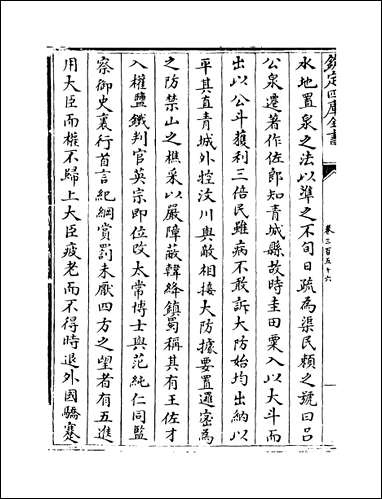 欽定四庫全書
卷三百五十六
水地置泉之法以準之不旬日疏為渠民頼之號曰吕
公泉遷著作佐郎知青城縣故時圭田粟入以大斗而
出以公斗獲利三倍民雖病不敢訴大防始均出納以
平其直青城外控汶川與敵相接大防據要置邏密為
之防禁山之樵采以嚴障蔽韓絳鎮蜀稱其有王佐才
入權鹽鐵判官英宗即位改太常博士與范純仁同監
察御史裏行首言紀綱賞罰未厭四方之望者有五進
用大臣而權不歸上大臣疲老而不得時退外國驕蹇